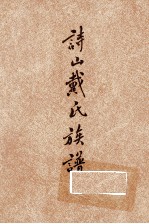 詩山戴氏族譜